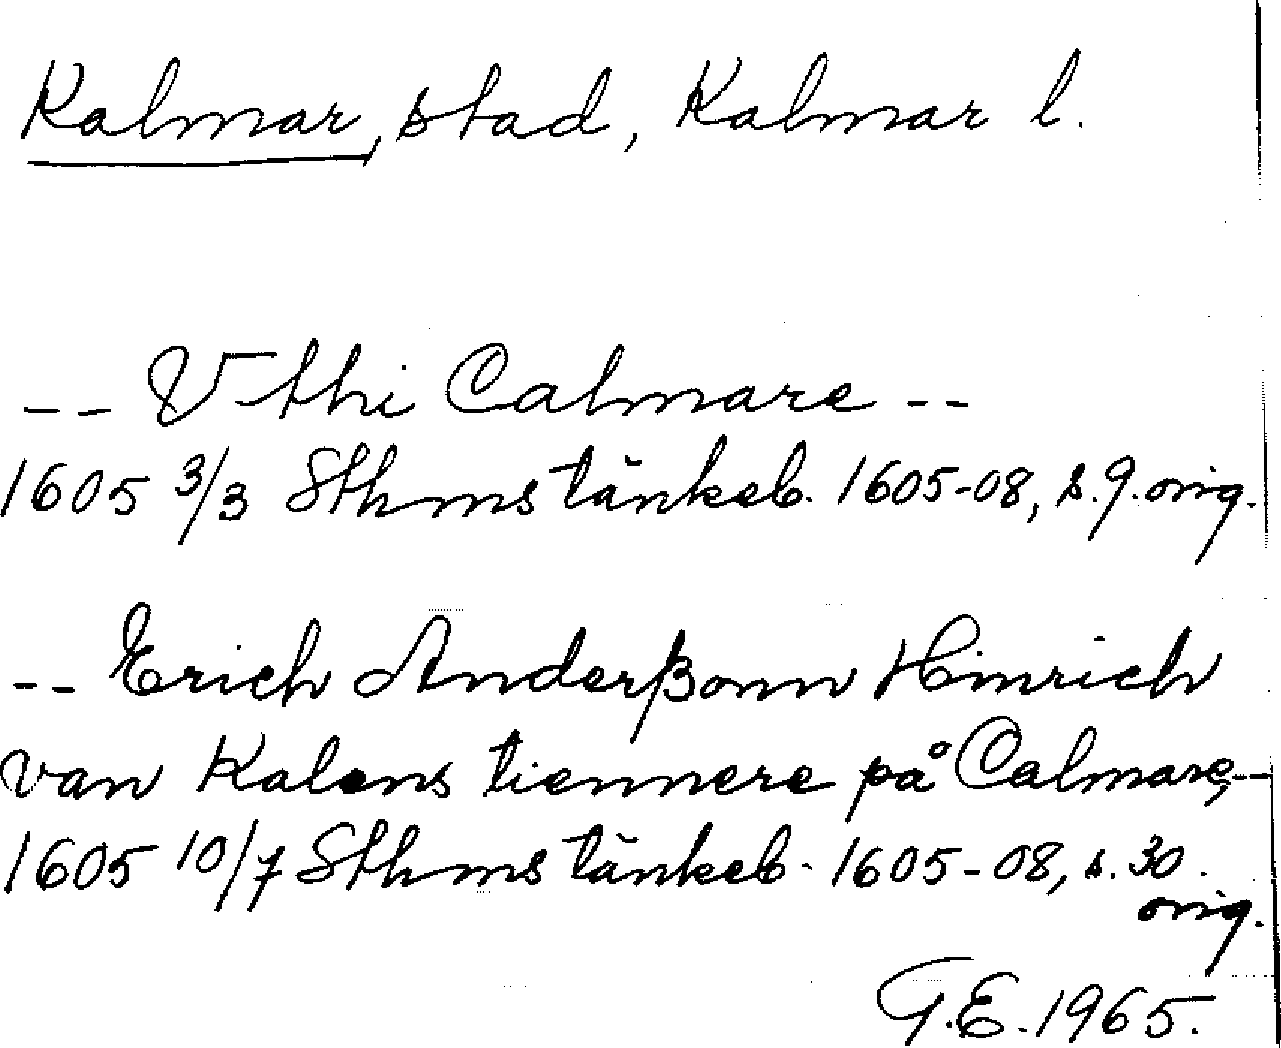 Kalmar, stad, Kalmar l.
-- Vthi Calmare --
1605 3/3 Sthms tänkeb. 1605-08, s. 9. orig.
-- Erich Anderßonn Hinrich
van Kalens tiennere på Calmare, --
1605 10/7 Sthms tänkeb. 1605-08, s. 30.
orig.
G.E. 1965.